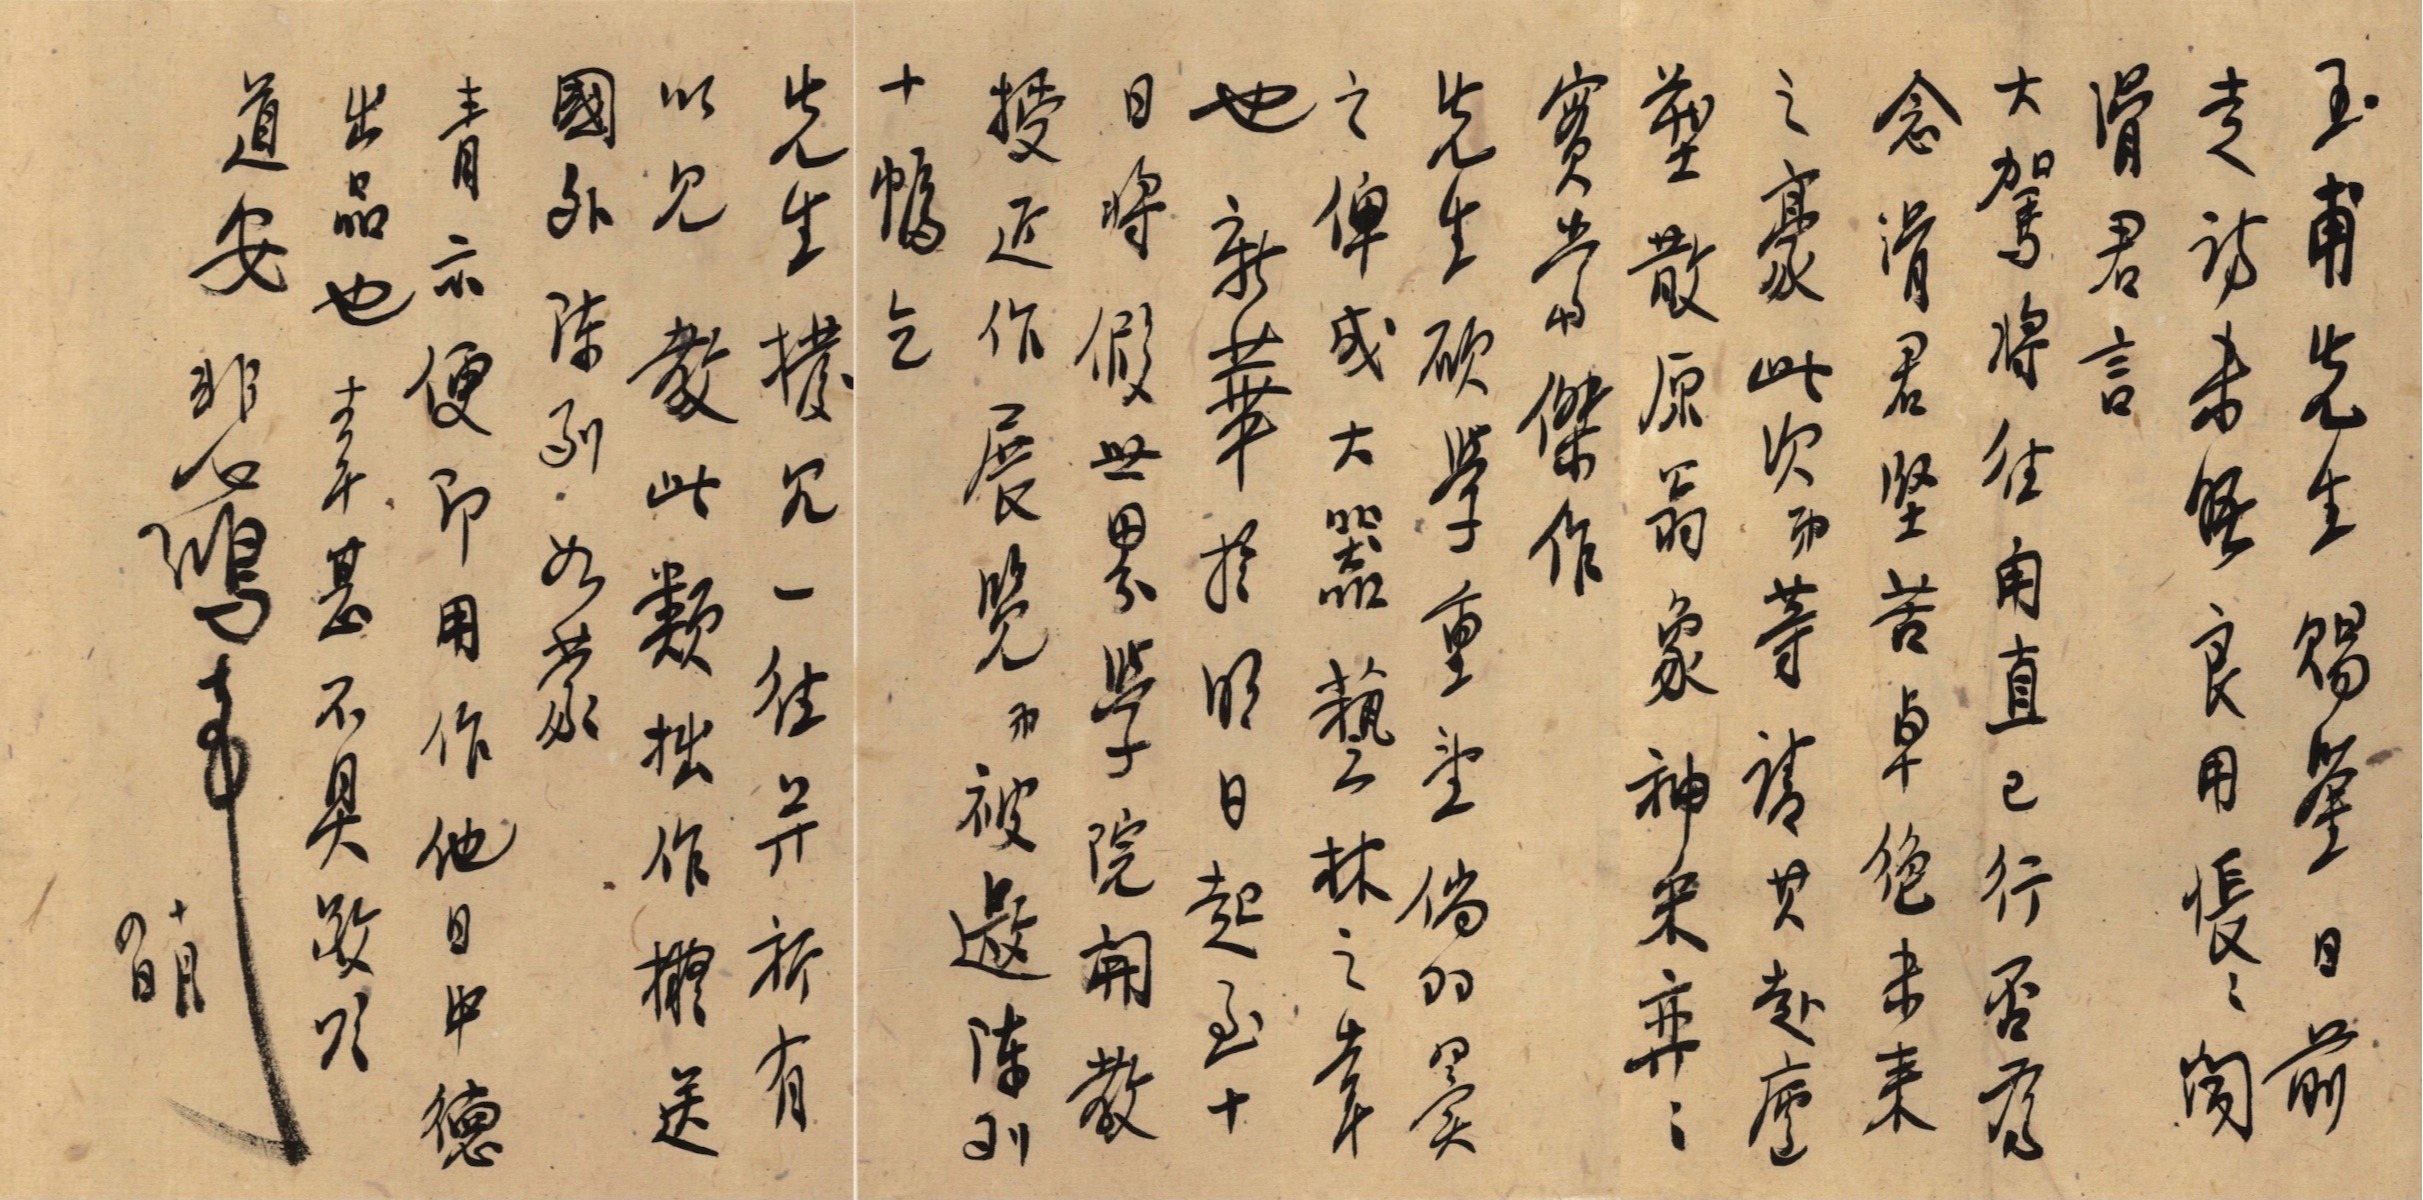 玉甫先生賜鑒日前
走訪未晤良用悵〻閱
滑君言
大駕將往甪直已行否為
念滑君堅苦卓絕未來
之豪此次而等請其赴廬
塑散原翁象神采奕〻
實皆傑作
先生碩學重望倘羽翼
之俾成大器藝林之幸
也新華於明日起至十
日將假世界學院開教
授近作展覽而被邀陳列
十幅乞
先生撥冗一往並祈有
以見教此類拙作擬送
國外陳列如蒙
青示便即用作他日中德
出品也幸甚不具敬頌
道安 悲鴻
十一月四日